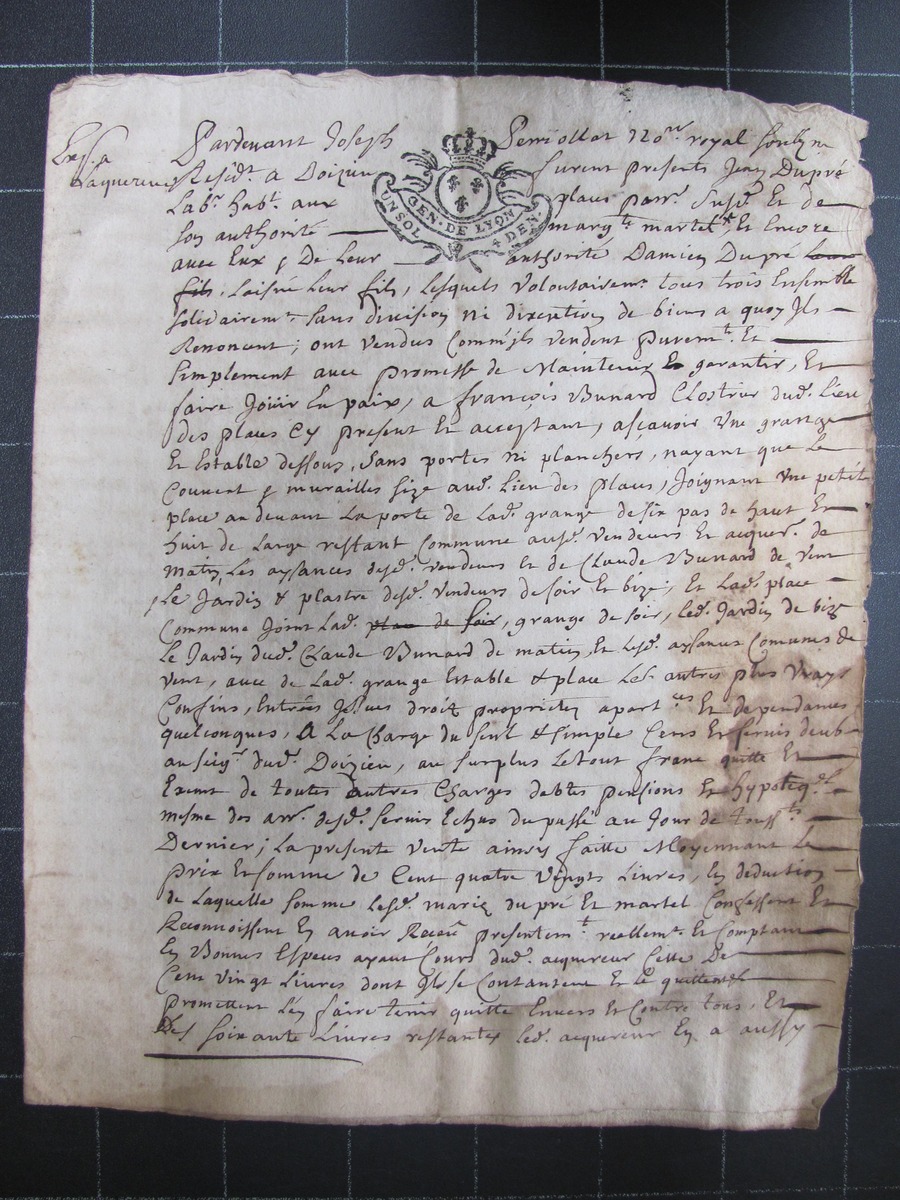 Exp. a
Laquereur
Pardevant Joseph Perriollat no.re royal soub.ne
Resid.t a Doizieu furent presents Jean Dupré
Lab.r hab.t aux places parr. Susd. Et de
son authorité marg.te martel Et Encore
avec Eux & De Leur authorité Damien Dupré Leur
fils, laisne Leur fils, Lesquels Volontairem.t tous trois Ensemble
solidairem.t sans division ni discution de biens a quoy Ils
Renoncent; ont vendus Comm'ils vendent purem.t Et
simplement avec promesse de Maintenir Et garantir, Et
faire Joüir En paix, a françois Bunard Clostrier dud. Lieu
des places Cy present Et acceptant, asçavoir Une grange
Et Estable dessous, sans portes ni planchers, nayant que Le
Couvert & murailles size aud. Lieu des places, Joignant Une petite
place au devant La porte de Lad. grange de six pas de haut Et
huit de Large restant Commune ausd. Vendeurs Et acquer.r de
matin, Les aysances desd. Vendeurs et de Claude Bunard de Vent
Le Jardin & plastre desd. Vendeurs de soir Et bize; Et Lad. place
Commune Joint Lad. place de soir, grange de soir, led. Jardin de bize
Le Jardin dud. Claude Bunard de matin, Et lesd. aysances Comunes de
Vent, avec de Lad. grange Estable & place Les autres plus Vrays
Confins, Entrées Issues droits proprietez apart.ces Et dependances
quelconques, A La Charge du seul & simple Cens Et servis deub
au seig.r dud. Doizieu, au surplus Le tout franc quitte Et
Exemt de toutes autres Charges debtes pensions Et hypoteq.s
mesme des arr. desd. servis Echus du passé au Jour de touss.ts
Dernier; La presente Vente ainsy faitte Moyennant Le
prix Et somme de Cent quatre Vingts Livres, En deduction
de Laquelle somme Lesd. mariez dupré Et martel Confessent Et
Reconnoissent En avoir Receu presentem.t reellem.t Et Comptant
En Bonnes Especes ayant Cours dud. acquereur Celle De
Cent Vingt Livres dont Ils se Contantent Et Le quittent
promettent L'en faire tenir quitte Envers Et Contre tous, Et
Des soixante Livres restantes Led. acquereur En a aussy
GEN. DE LYON
UN SOL 4 DEN.